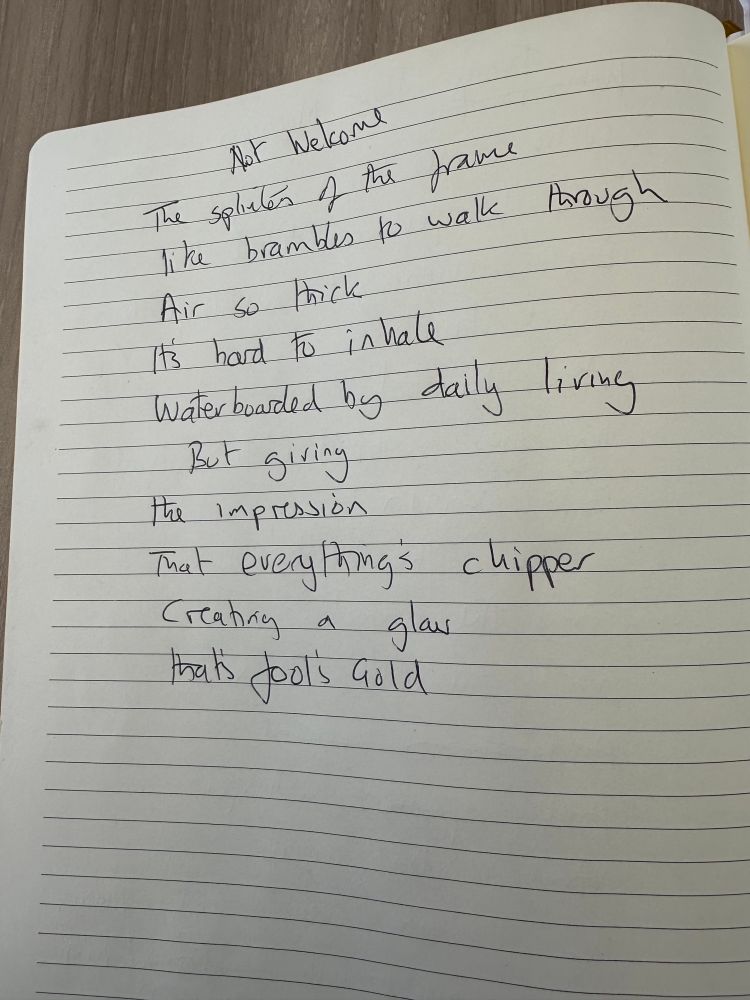 Not Welcome
The splinters of the frame
like brambles to walk through
Air so thick
It's hard to inhale
Waterboarded by daily living
But giving
the impression
That everything's chipper
Creating a
that's fool's Gold